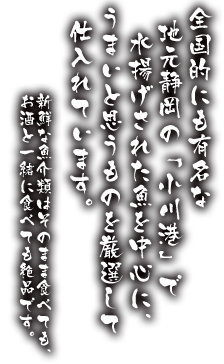 全国的にも有名な
地元静岡の「小川港」で
水揚げされた魚を中心に、
うまいと思うものを厳選して
仕入れています。
新鮮な魚介類はそのまま食べても、
お酒と一緒に食べても絶品です。